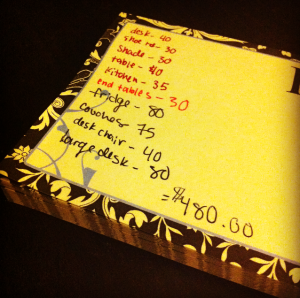 desk - 40
shoe - 30
Shade - 30
table - 40
Kitchen - 35
end tables - 30
fridge - 80
couches 75
desk chair - 40
Large desk - 80
= $480.00